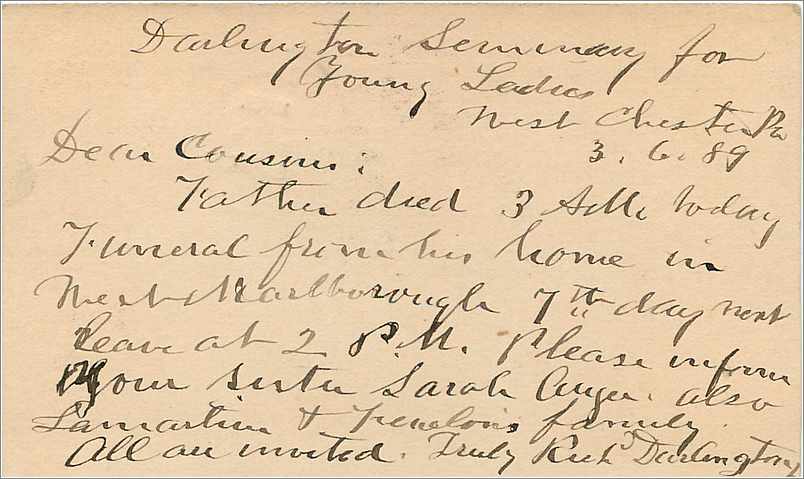 Darlington Seminary for
Young Ladies
West Chester Pa
3. 6. 89
Dear Cousins:
Father died 3 A.M. today
Funeral from his home in
West Marlborough 7th day next
Leave at 2 P.M. Please inform
your sister Sarah also
Lamartine & Fenelon's family.
All are invited. Truly Rich'd Darlington